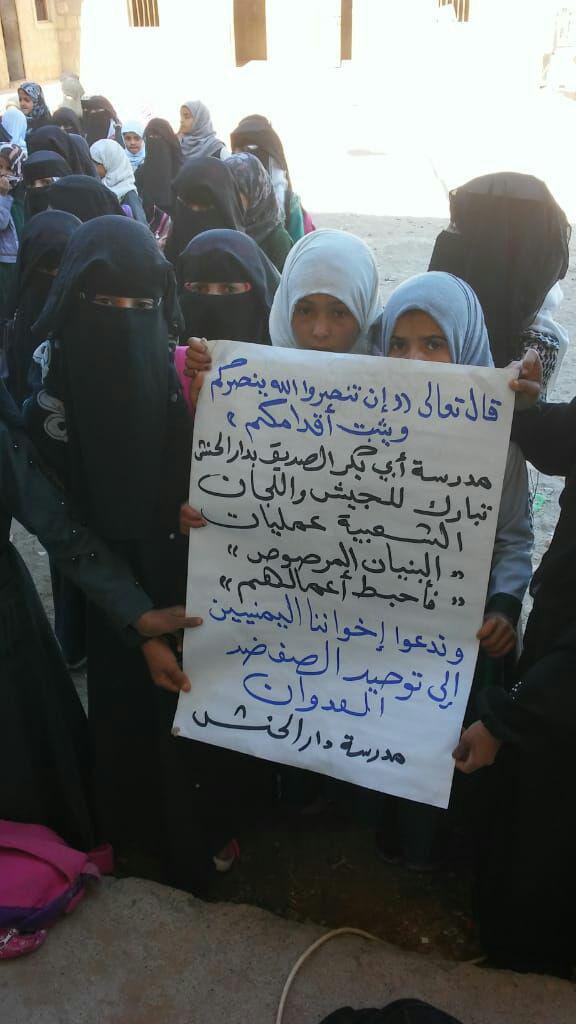 قال تعالى ((وإن تنصروا الله ينصركم
ويثبت أقدامكم))
مدرسة أبي بكر الصديق بدار الحنش
تبارك للجيش واللجان
الشعبية عمليات
((البنيان المرصوص))
((فأحبط أعمالهم))
وندعوا إخواننا اليمنيين
إلى توحيد الصف ضد
العدوان
مدرسة دار الحنش